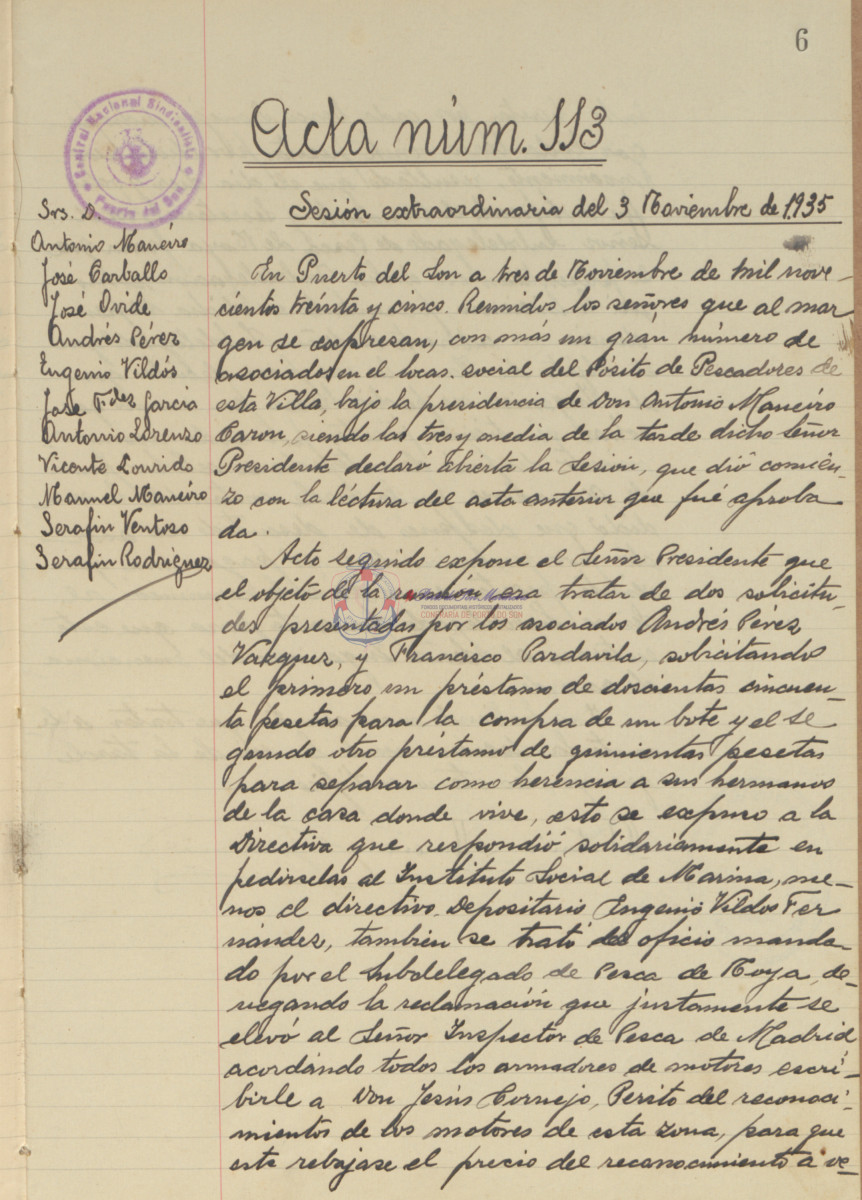 6
Acta núm. 113
Central Nacional Sindicalista
Puerto del Son
Sesión extraordinaria del 3 Noviembre de 1935
Srs. D.
Antonio Maneiro
José Carballo
José Ovide
Andrés Pérez
Eugenio Vildós
Jose Fdez Garcia
Antonio Lorenzo
Vicente Lourido
Manuel Maneiro
Serafin Ventoso
Serafin Rodriguez
En Puerto del Son a tres de Noviembre de mil nove-
cientos treinta y cinco. Reunidos los señores que al mar
gen se expresan, con más un grán número de
asociados en el locas. social del Pósito de Pescadores de
esta Villa, bajo la presidencia de Don Antonio Maneiro
Caron, siendo las tres y media de la tarde dicho señor
Presidente declaró abierta la Sesión, que dió comien-
zo con la léctura del acta anterior que fué aproba
da.
Acto seguido expone el Señor Presidente que
el objéto de la reunión era tratar de dos solicitu-
des presentadas por los asociados Andrés Pérez
Vazquez, y Francisco Pardavila, solicitando
el primero un préstamo de doscientas cincuen-
ta pesetas para la compra de un bote y el se
gundo otro préstamo de quinientas pesetas
para separar como herencia a sus hermanos
de la casa donde vive, esto se expuso a la
Directiva que respondió solidariamente en
pedirselas al Instituto Social de Marina, me-
nos el directivo Depositario Eugenio Vildos Fer
nández, también se trató del oficio manda-
do por el Subdelegado de Pesca de Noya, de-
negando la reclamación que justamente se
elevó al Señor Inspector de Pesca de Madrid
acordándo todos los armadores de motores escri-
birle a Don Jesús Cornejo, Perito del reconoci-
mientos de los motores de esta zona, para que
este rebajase el precio del reconocimiento a ve-
FONDOS DOCUMENTAIS HISTÓRICOS DIXITALIZADOS
CONFRARÍA DE PORTO DO SON